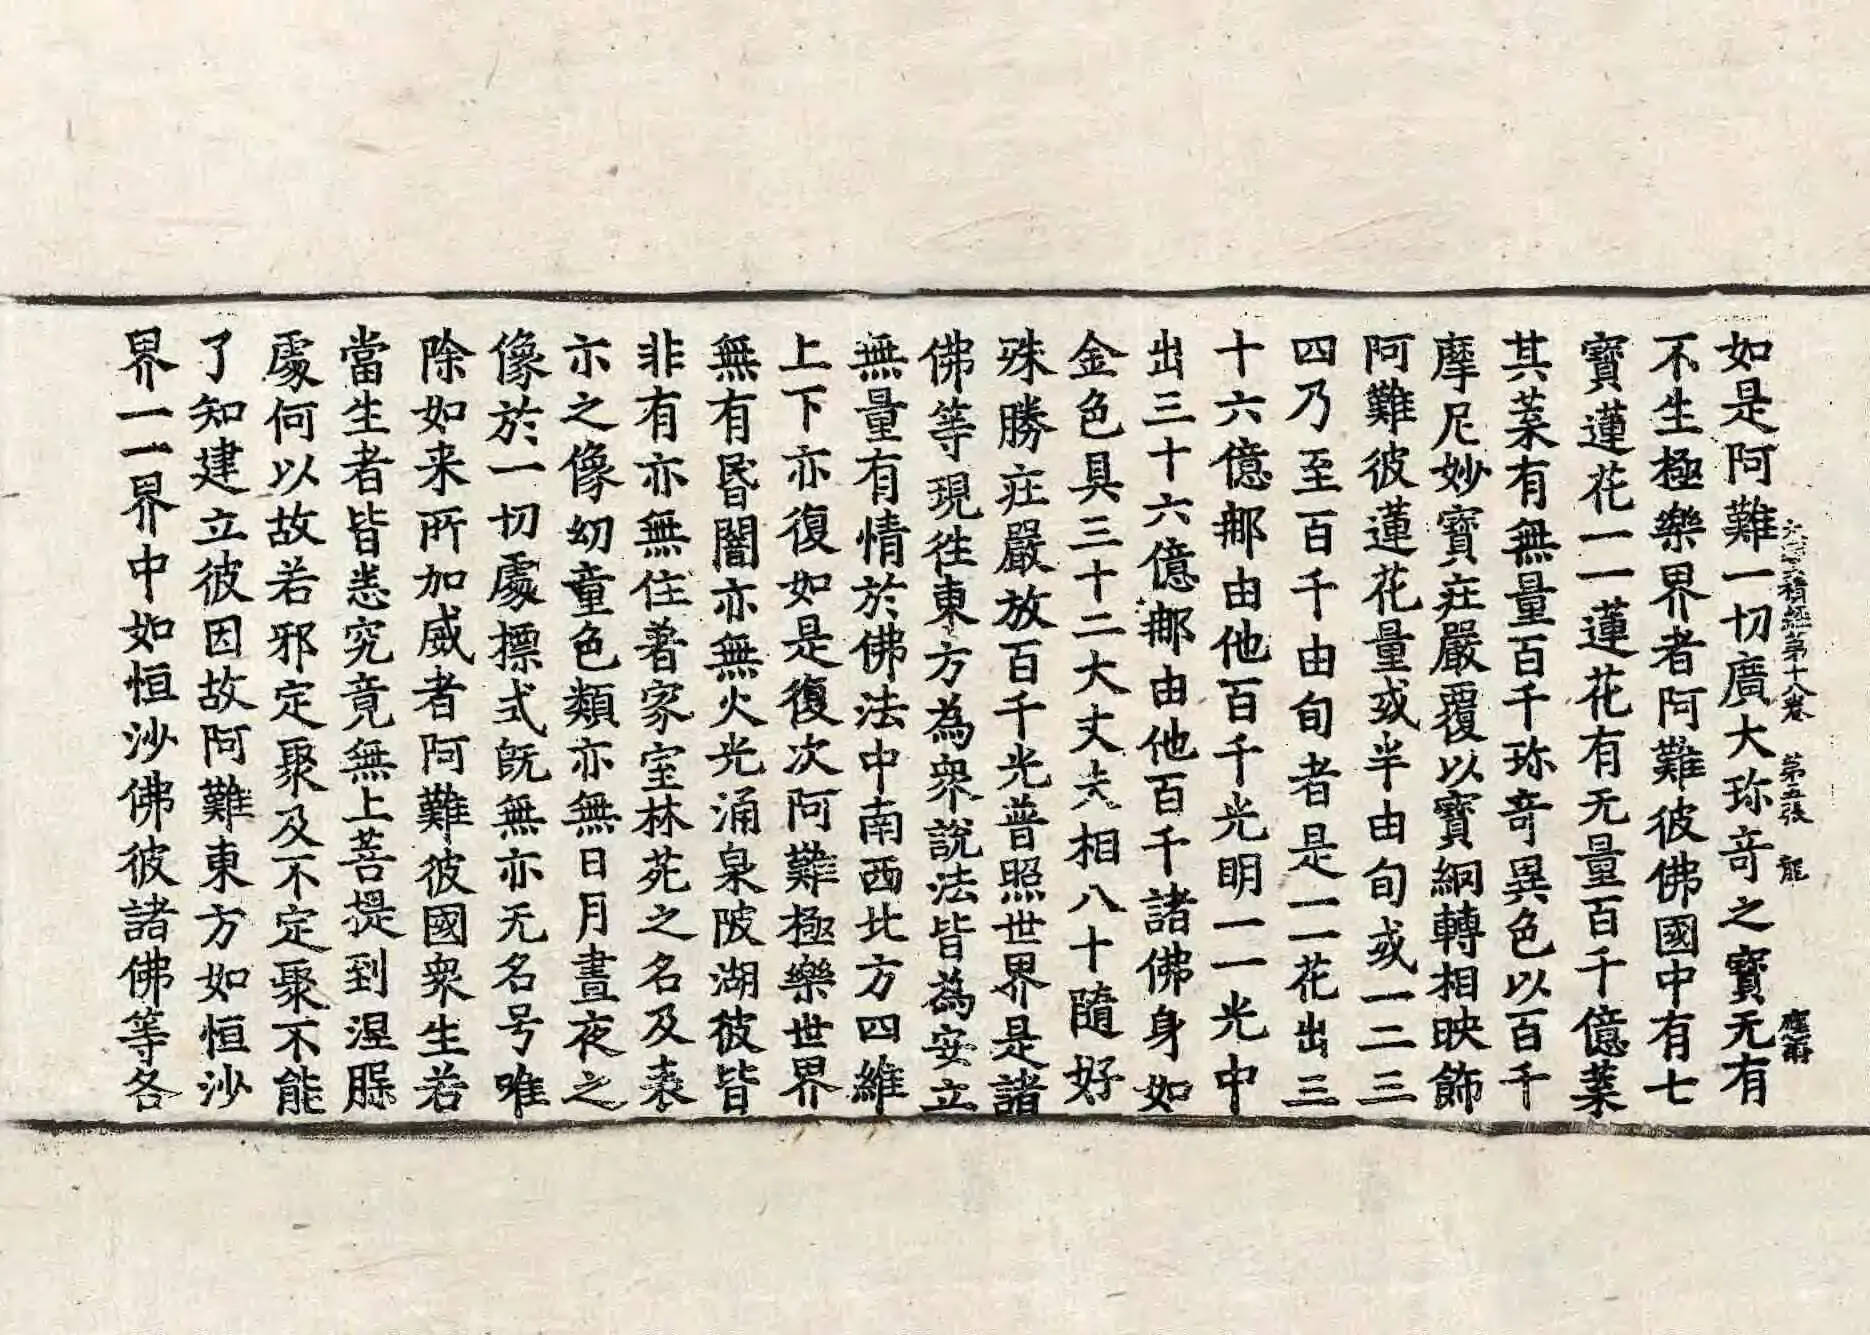 大寶積經第十八卷　第五張　龍　應甫
如是阿難一切廣大珎竒之寶无有
不生極樂界者阿難彼佛國中有七
寶蓮花一一蓮花有无量百千億葉
其葉有無量百千珎竒異色以百千
摩尼妙寶莊嚴覆以寶網轉相映飾
阿難彼蓮花量或半由旬或一二三
四乃至百千由旬者是一一花出三
十六億那由他百千光明一一光中
出三十六億那由他百千諸佛身如
金色具三十二大丈夫相八十隨好
殊勝莊嚴放百千光普照世界是諸
佛等現徃東方為衆說法皆為安立
無量有情於佛法中南西北方四維
上下亦復如是復次阿難極樂世界
無有昏闇亦無火光涌泉陂湖彼皆
非有亦無住著家室林苑之名及表
示之像幼童色類亦無日月晝夜之
像於一切處摽式旣無亦无名号唯
除如来所加威者阿難彼國衆生若
當生者皆悉究竟無上菩提到涅槃
處何以故若邪定聚及不定聚不能
了知建立彼因故阿難東方如恒沙
界一一界中如恒沙佛彼諸佛等各